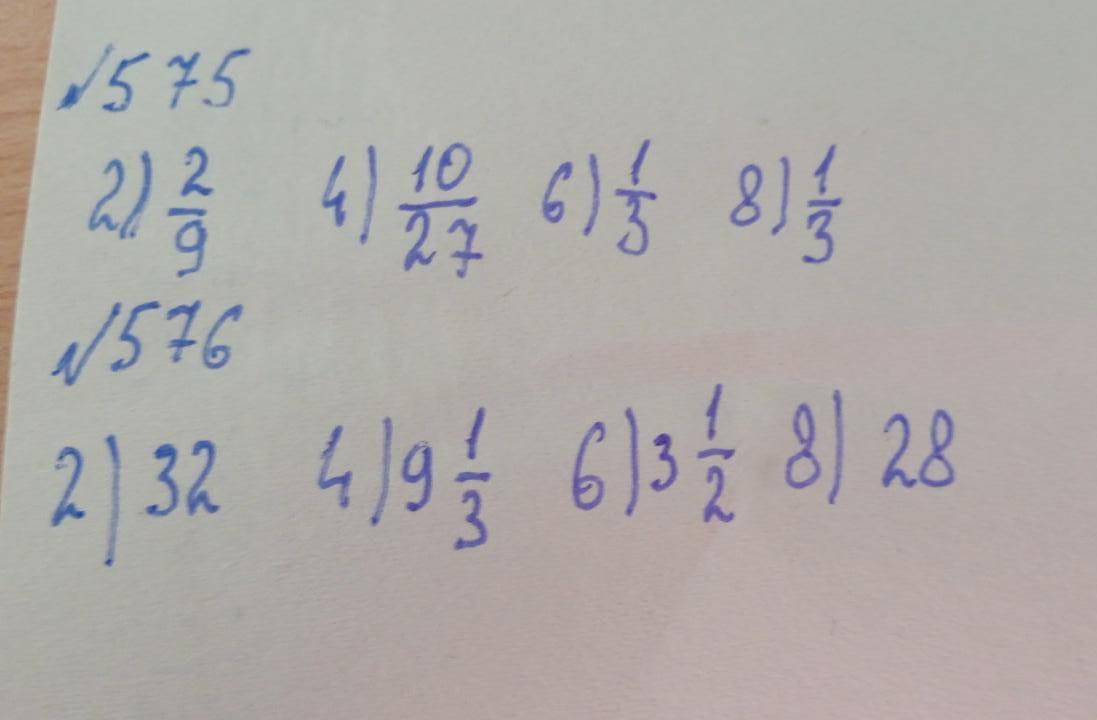 №575
2) 2/9 4) 10/27 6) 1/3 8) 1/3
№576
2) 32 4) 9 1/3 6) 3 1/2 8) 28